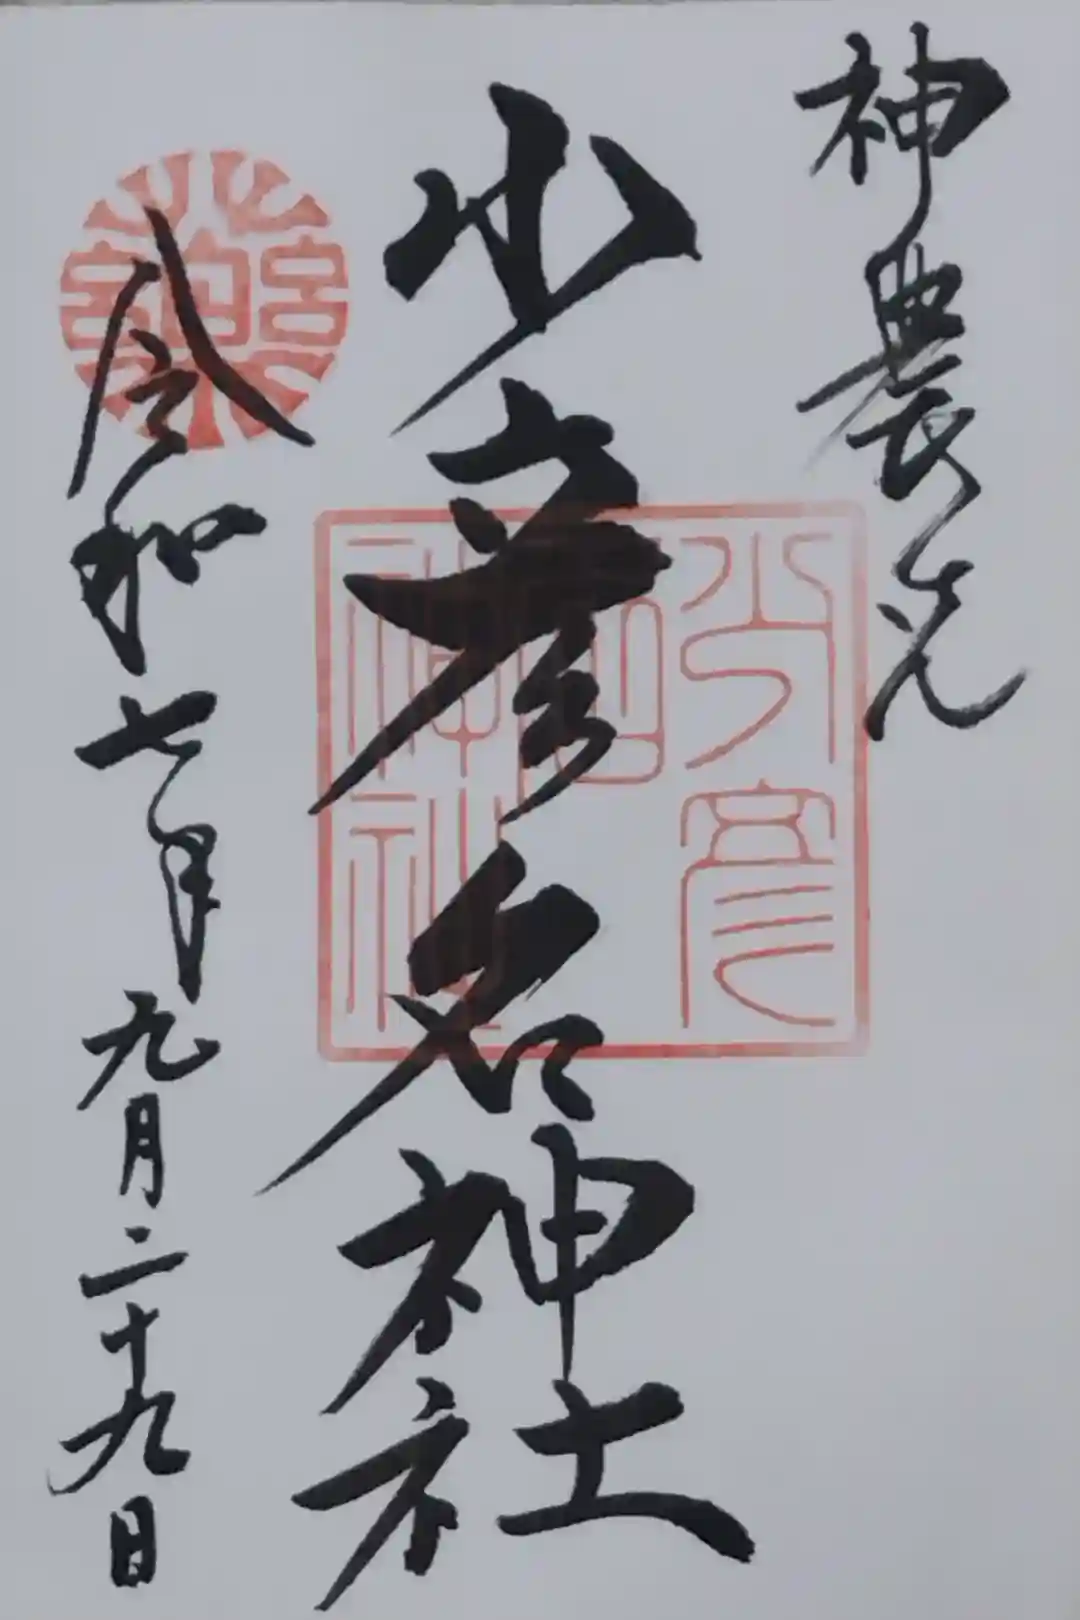 神農さん
少彦名神社
令和七年九月二十九日
少彦名神社